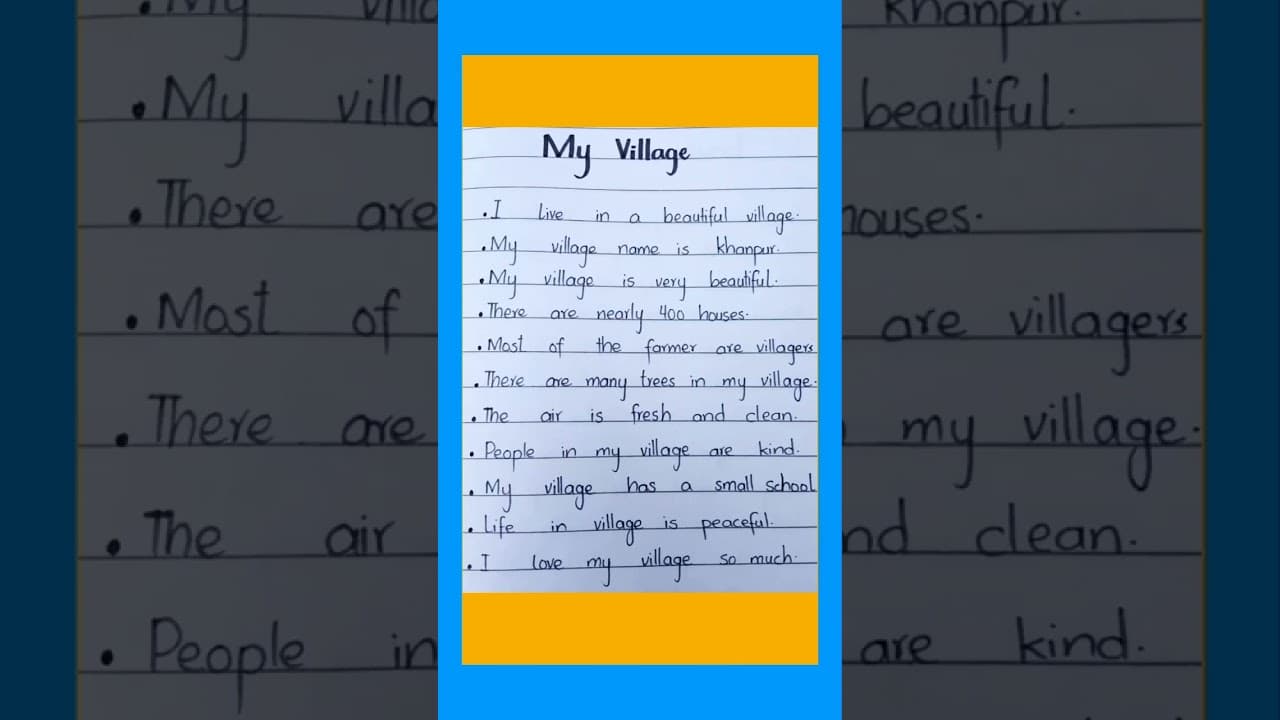 My Village
• I live in a beautiful village.
• My village name is khanpur.
• My village is very beautiful.
• There are nearly 400 houses.
• Most of the farmer are villagers
• There are many trees in my village.
• The air is fresh and clean.
• People in my village are kind.
• My village has a small school
• Life in village is peaceful.
• I love my village so much.